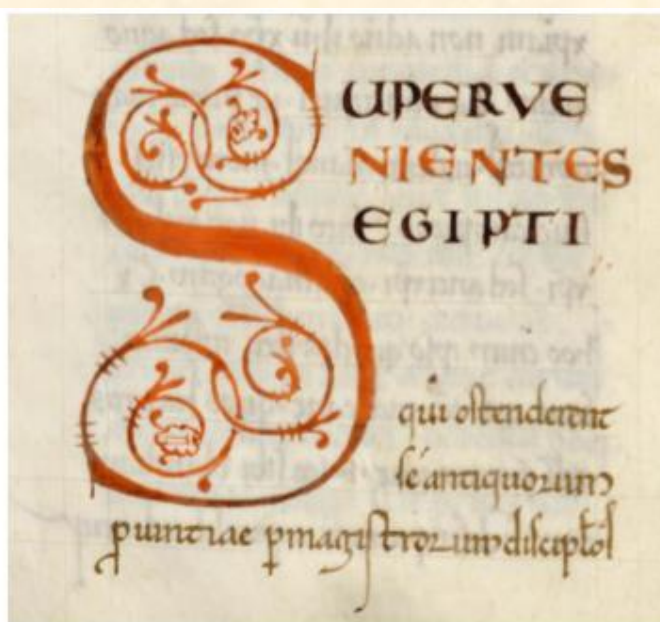 SUPERVE
NIENTES
EGIPTI
qui ostenderent
se antiquorum
ꝓuintiae ꝑmagistrorum discipłos